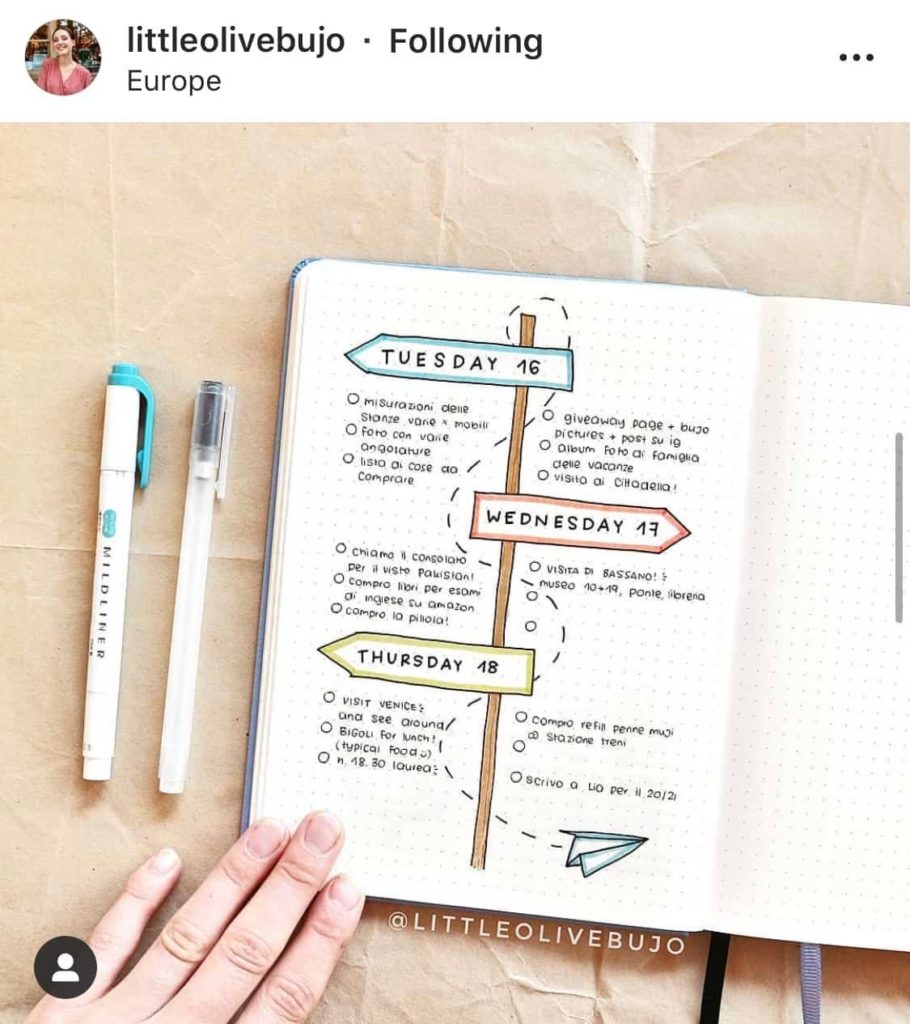 littleolivebujo · Following
Europe
TUESDAY 16
misurazioni delle
stanze varie x mobili
foto con varie
angolature
lista di cose da
comprare
giveaway page + bujo
pictures + post su ig
album foto di famiglia
delle vacanze
visita di Cittadella!
WEDNESDAY 17
chiamo il consolato
per il visto Pakistan!
compro libri per esami
di inglese su amazon
compro la pillola!
VISITA DI BASSANO!
museo 10+19, ponte, libreria
THURSDAY 18
VISIT VENICE:
and see around
BIGOLI FOR LUNCH!
(typical food :))
h. 18.30 laurea:
compro refill penne muji
@ stazione treni
scrivo a Lia per il 20/21
MILDLINER
@LITTLEOLIVEBUJO